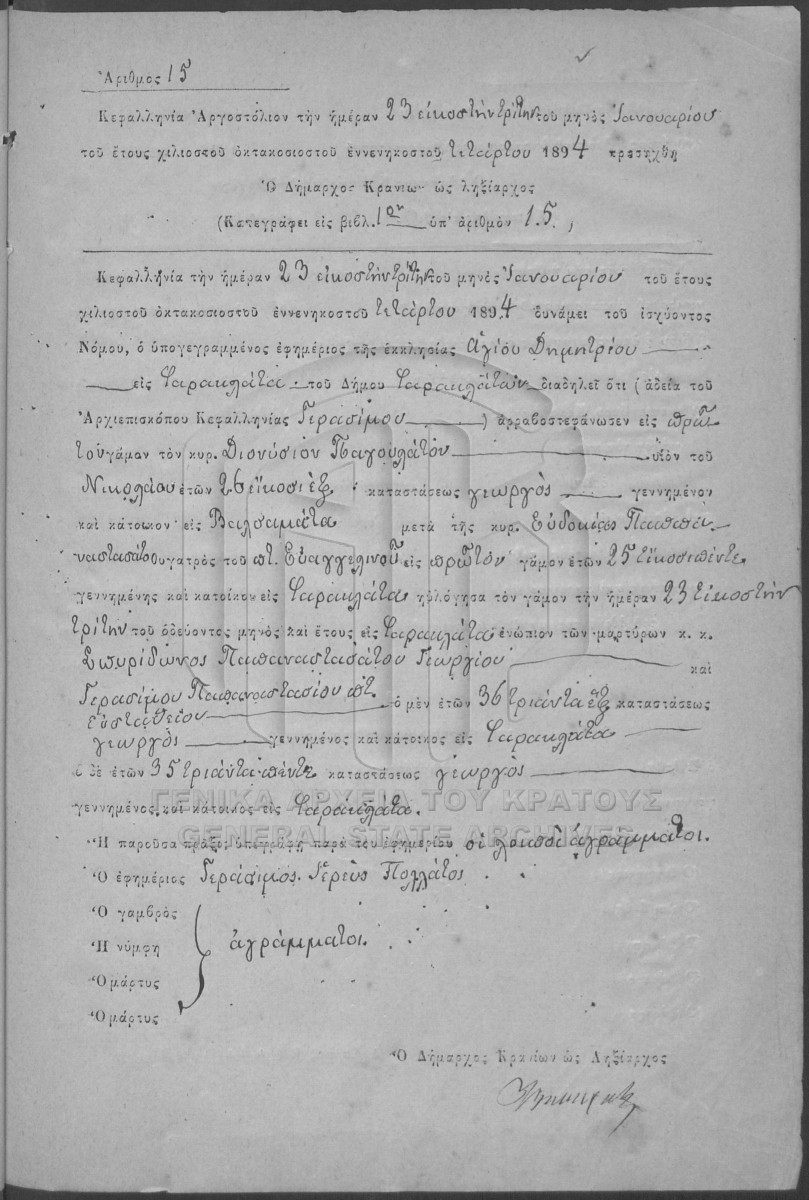 Ἀριθμος 15
Κεφαλληνία Ἀργοστόλιον τὴν ἡμέραν 23 εἰκοστὴν τρίτην τοῦ μηνὸς Ἰανουαρίου
τοῦ ἔτους χιλιοστοῦ ὀκτακοσιοστοῦ ἐννενηκοστοῦ τετάρτου 1894 προσήχθη
Ὁ Δήμαρχος Κρανίων ὡς ληξίαρχος
(Κατεγράφει εἰς βιβλ. 1ον ὑπ' ἀριθμὸν 15.)
Κεφαλληνία τὴν ἡμέραν 23 εἰκοστὴν τρίτην τοῦ μηνὸς Ἰανουαρίου τοῦ ἔτους
χιλιοστοῦ ὀκτακοσιοστοῦ ἐννενηκοστοῦ τετάρτου 1894 δυνάμει τοῦ ἰσχύοντος
Νόμου, ὁ ὑπογεγραμμένος ἐφημέριος τῆς ἐκκλησίας Ἁγίου Δημητρίου
εἰς Φαρακλάτα τοῦ Δήμου Φαρακλάτων διαδηλεῖ ὅτι (ἀδεία τοῦ
Ἀρχιεπισκόπου Κεφαλληνίας Γερασίμου) ἀρραβοστεφάνωσεν εἰς πρῶ
τον γάμον τὸν κυρ. Διονύσιον Παγουλάτον υἱὸν τοῦ
Νικολάου ἐτῶν 26 εἴκοσι ἕξ καταστάσεως γεωργὸς γεννημένον
καὶ κάτοικον εἰς Βαλσαμάτα μετὰ τῆς κυρ. Εὐδοκίας Παπανα
ναστασάτο θυγατρὸς τοῦ πτ. Εὐαγγελινοῦ εἰς πρῶτον γάμον ἐτῶν 25 εἴκοσιπέντε
γεννημένης καὶ κατοίκου εἰς Φαρακλάτα ηὐλόγησα τὸν γάμον τὴν ἡμέραν 23 εἰκοστὴν
τρίτην τοῦ ὁδεύοντος μηνὸς καὶ ἔτους εἰς Φαρακλάτα ἐνώπιον τῶν μαρτύρων κ. κ.
Σπυρίδωνος Παπαναστασάτου Γεωργίου καὶ
Γερασίμου Παπαναστασίου πτ. ὁ μὲν ἐτῶν 36 τριάντα ἕξ καταστάσεως
Εὐσταθείου
γεωργὸς γεννημένος καὶ κάτοικος εἰς Φαρακλάτα
ὁ δὲ ἐτῶν 35 τριάντα πέντε καταστάσεως γεωργὸς
γεννημένος καὶ κάτοικος εἰς Φαρακλάτα.
ΓΕΝΙΚΑ ΑΡΧΕΙΑ ΤΟΥ ΚΡΑΤΟΥΣ
GENERAL STATE ARCHIVES
Ἡ παροῦσα πρᾶξις ὑπεγράφη παρὰ τοῦ ἐφημερίου οἱ λοιποὶ ἀγράμματοι.
Ὁ ἐφημέριος Γεράσιμος Ἱερεὺς Πολλάτος
Ὁ γαμβρὸς
Ἡ νύμφη ἀγράμματοι.
Ὁ μάρτυς
Ὁ μάρτυς
Ὁ Δήμαρχος Κρανίων ὡς Ληξίαρχος